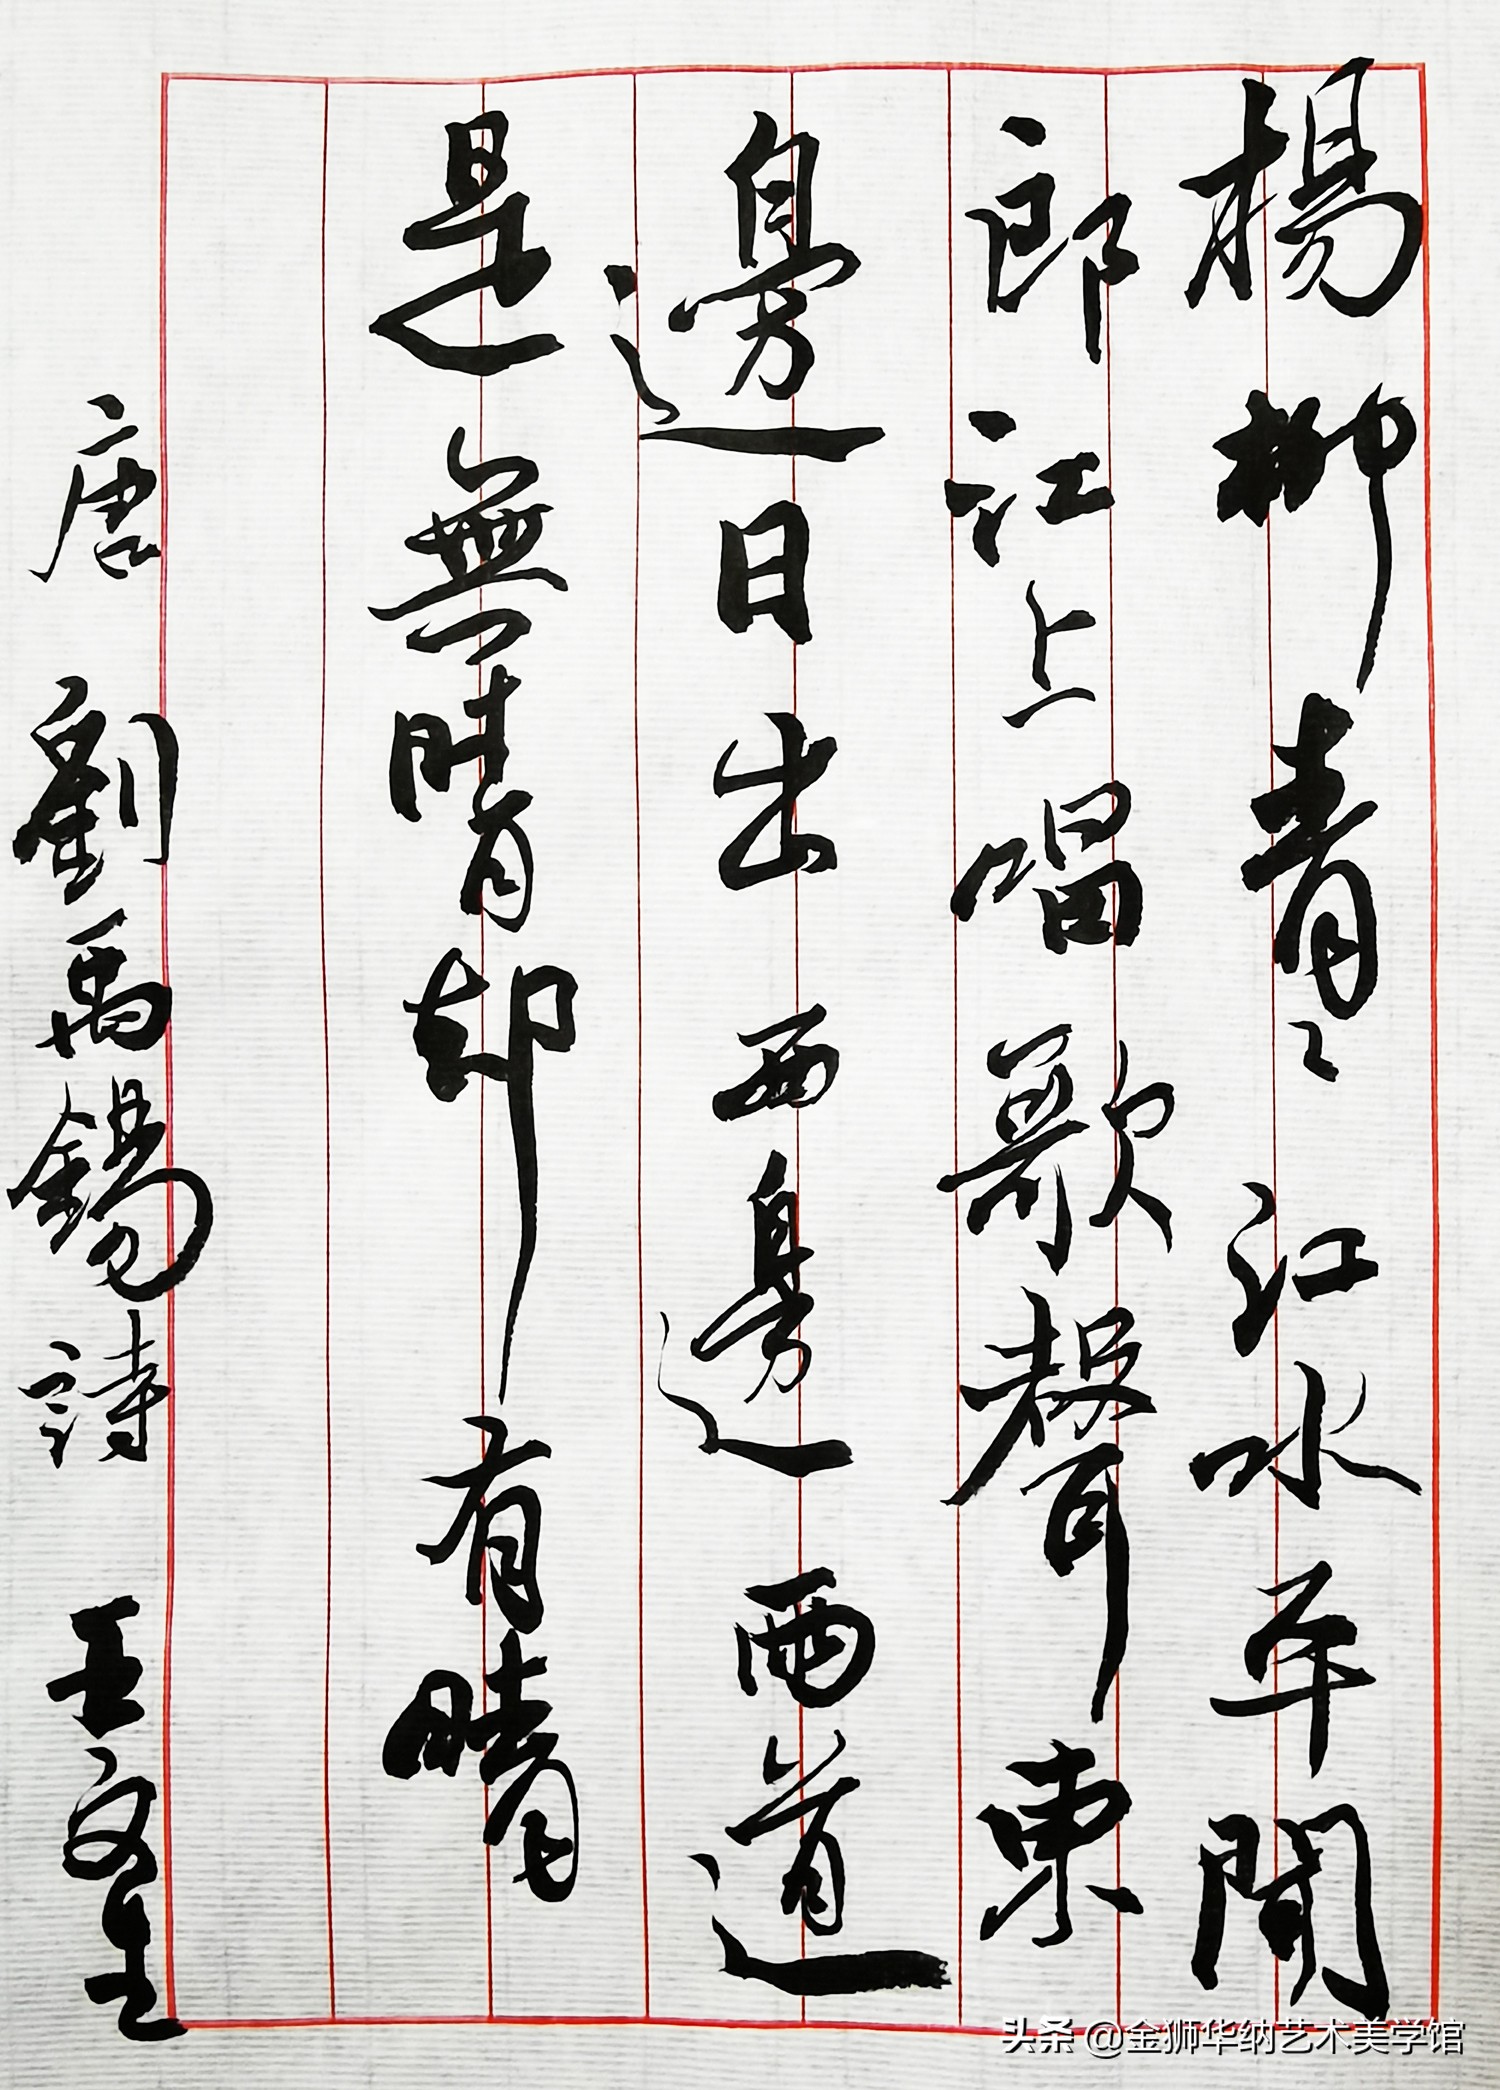 楊柳青々江水平聞
郎江上唱歌聲東
邊日出西邊雨道
是無晴却有晴
唐 劉禹錫詩 王文生
头条 @金狮华纳艺术美学馆